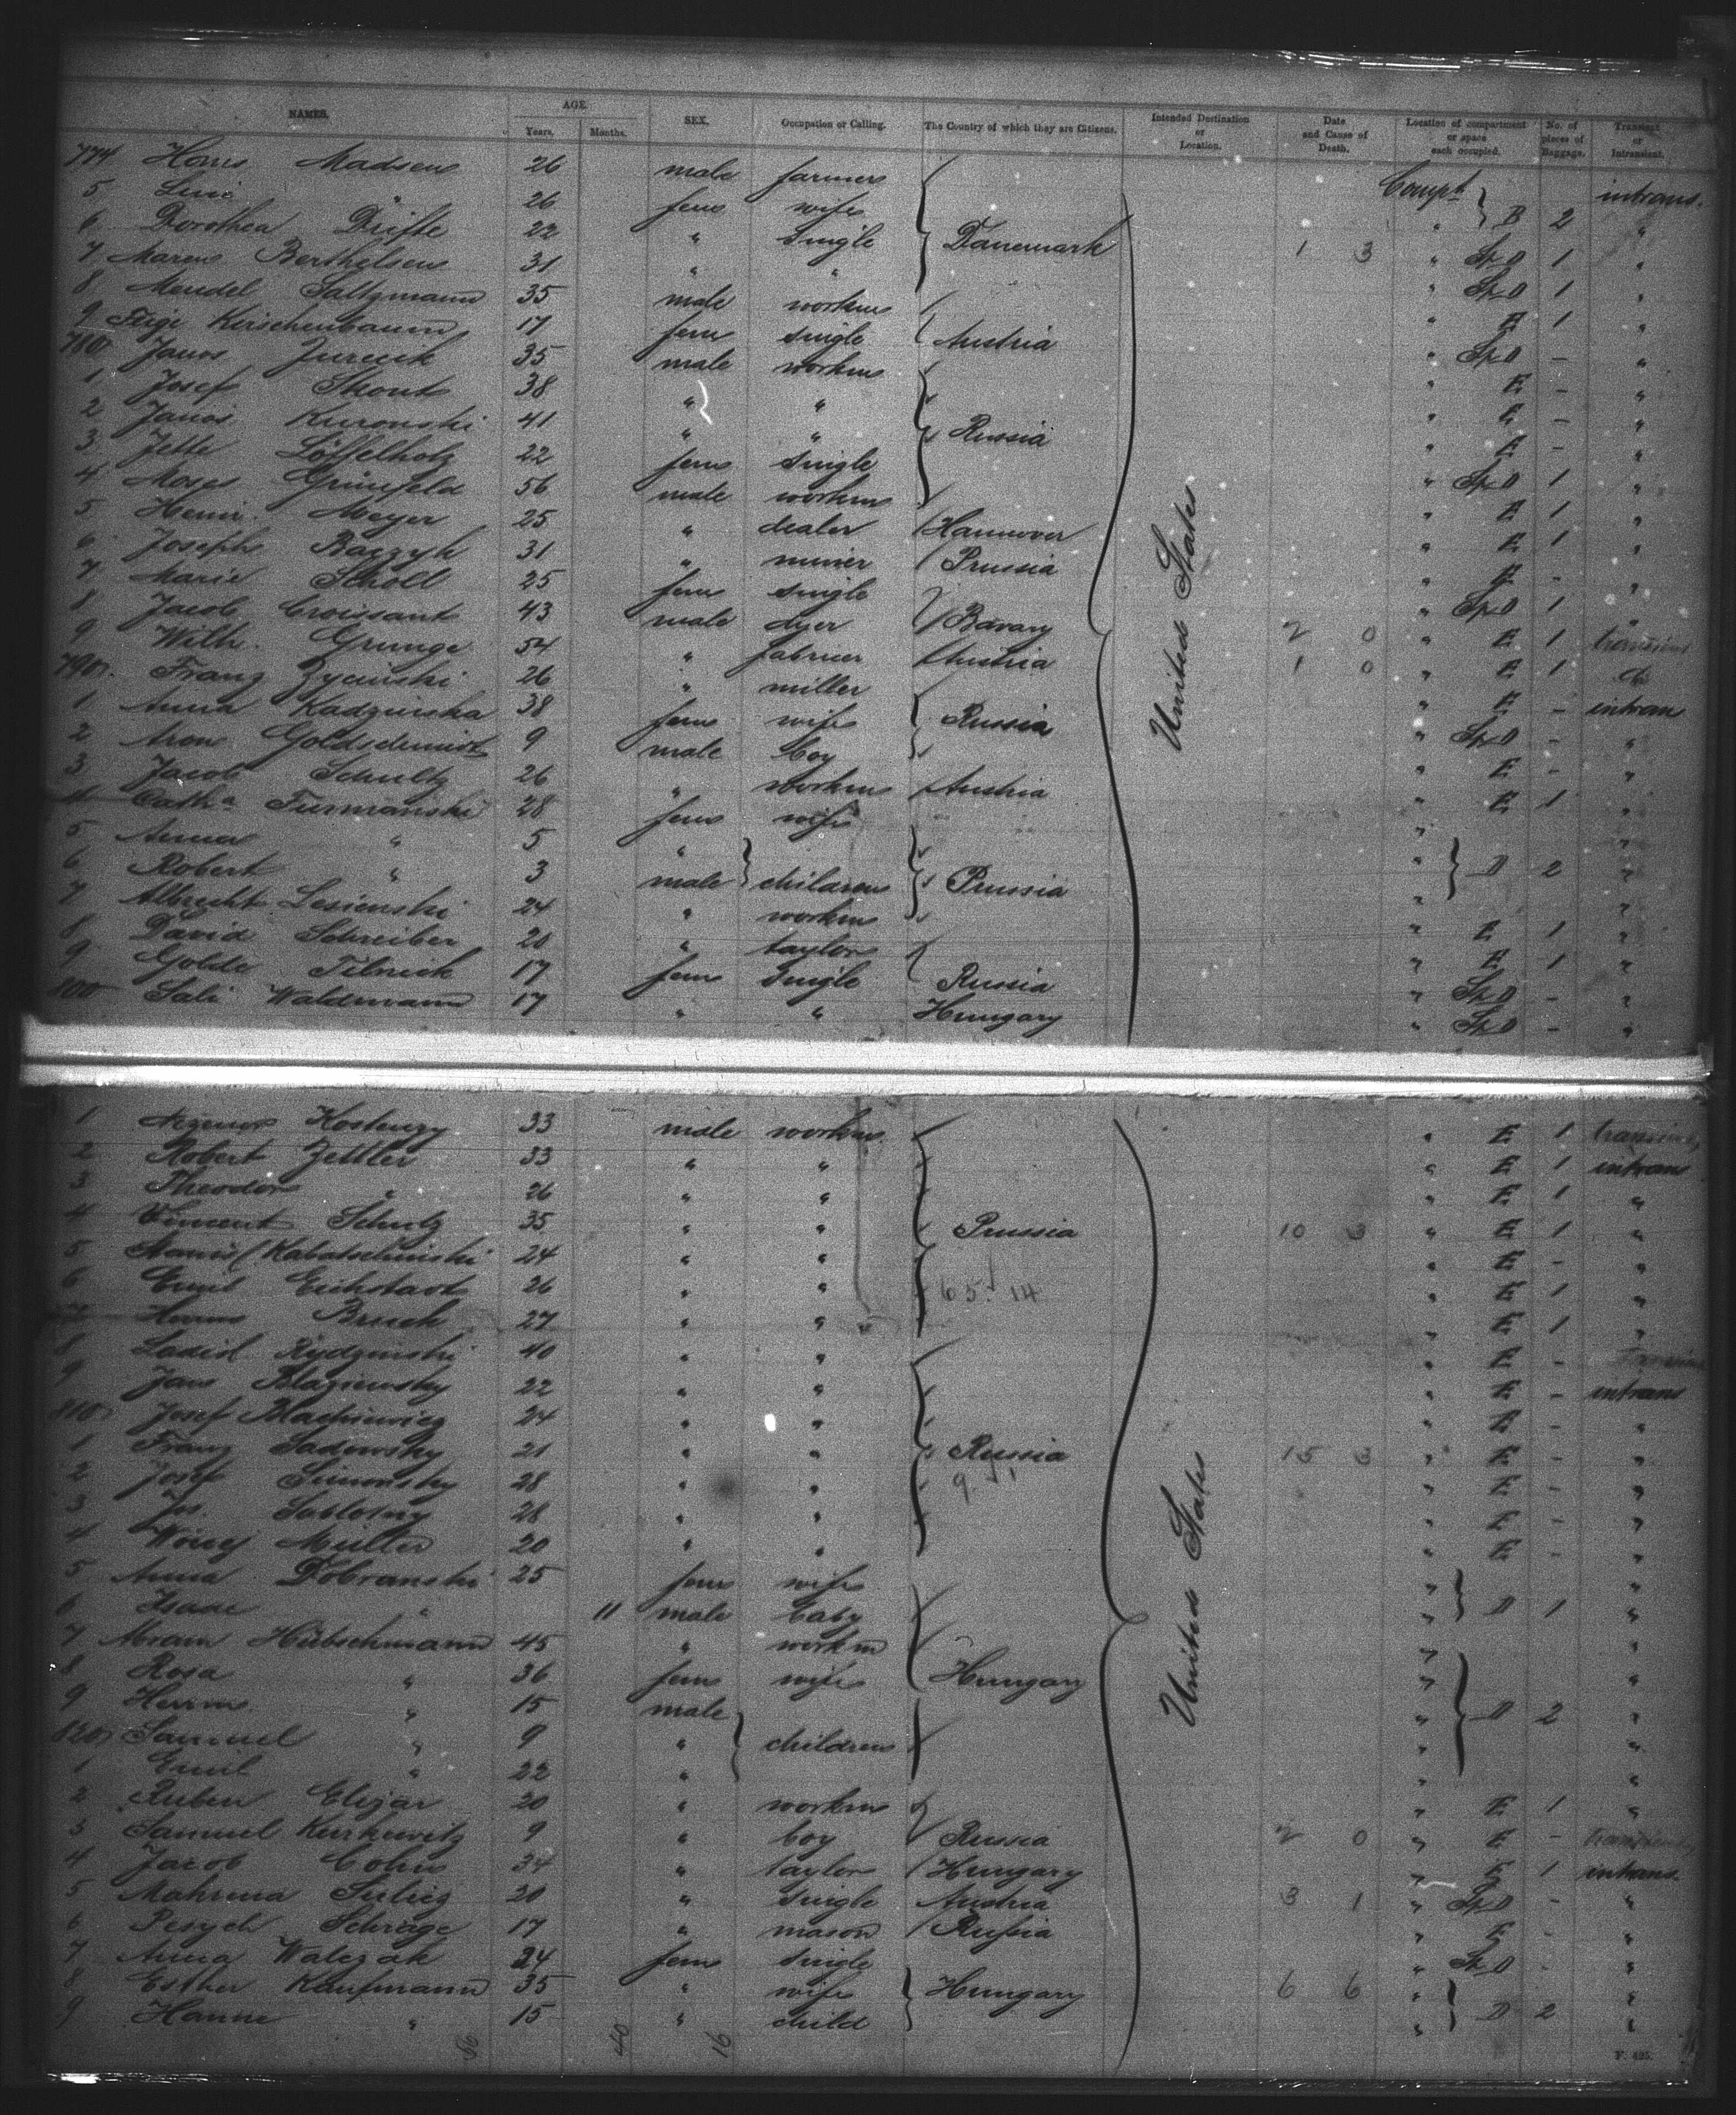 NAMES. AGE. Years. Months. SEX. Occupation or Calling. The Country of which they are Citizens. Intended Destination or Location. Date and Cause of Death. Location of compartment or space each occupied. No. of pieces of Baggage. Transient or Intransient.
774 Hans Madsen 26 male farmer Compt intrans.
5 Line " 26 fem wife " B 2 "
6 Dorothea Drifte 22 " single Danemark 1 3 " Sp D 1 "
7 Maren Berthelsen 31 " " " Sp D 1 "
8 Mendel Saltzmann 35 male workm " E 1 "
9 Feige Kirschenbaum 17 fem single Austria " Sp D - "
780 Janos Jurcik 35 male workm " E - "
1 Josef Skont 38 " " " E - "
2 Janos Kuronski 41 " " Russia " E - "
3 Jette Löffelholz 22 fem single " Sp D 1 "
4 Moses Grünfeld 56 male workm " E 1 "
5 Heinr. Meyer 25 " dealer Hannover " E 1 "
6 Joseph Baczyk 31 " miner Prussia " E - "
7 Marie Scholl 25 fem single " Sp D 1 "
8 Jacob Croissant 43 male dyer Bavary 2 0 " E 1 transient
9 Wilh. Grunge 54 " fabriier Austria 1 0 " E 1 do
790 Franz Zycinski 26 " miller " E - intran
1 Anna Kadzinska 38 fem wife Russia " Sp D - "
2 Aron Goldschmidt 9 male boy " E - "
3 Jacob Schultz 26 " workm Austria " E 1 "
4 Catha Furmanski 28 fem wife " "
5 Anna " 5 " " D 2 "
6 Robert " 3 male children Prussia " "
7 Albrecht Lesienski 24 " workm " E 1 "
8 David Schreiber 20 " taylor " E 1 "
9 Golde Tilnick 17 fem single Russia " Sp D - "
800 Sali Waldmann 17 " " Hungary " Sp D - "
United States
1 Kostenzy 33 male workm " E 1 transient
2 Robert Zettler 33 " " " E 1 intrans
3 Theodor " 26 " " " E 1 "
4 Vincent Schulz 35 " " Prussia 10 3 " E 1 "
5 Stanisl Kabatschinski 24 " " " E - "
6 Emil Eichstaedt 26 " " 65. 14 " E 1 "
7 Herm Bruck 27 " " " E 1 "
8 Ladisl Rydzinski 40 " " " E - transient
9 Jan Blaziewsky 22 " " " E - intrans
810 Josef Mackiewicz 24 " " " E - "
1 Franz Sadowsky 21 " " Russia 15 3 " E - "
2 Josef Simonsky 28 " " " E - "
3 Jos. Sablotny 28 " " " E - "
4 Woicij Müller 20 " " " E - "
5 Anna Dobranski 25 fem wife " "
6 Isaac " 11 male baby " D 1 "
7 Abram Hübschmann 45 " workm " "
8 Rosa " 36 fem wife Hungary " "
9 Herm. " 15 male " D 2 "
820 Samuel " 9 " children " "
1 Emil " 22 " "
2 Ruben Elizar 20 " workm " E 1 "
3 Samuel Kurkewitz 9 " boy Russia 2 0 " E - transient
4 Jacob Cohn 34 " taylor Hungary " E 1 intrans.
5 Mahrina Sulicz 20 " single Austria 3 1 " Sp D - "
6 Pesych Schrage 17 " mason Russia " E - "
7 Anna Walczak 24 fem single " Sp D - "
8 Esther Kaufmann 35 " wife Hungary 6 6 " "
9 Hanne " 15 " child " D 2 "
United States
40 16
F. 425.